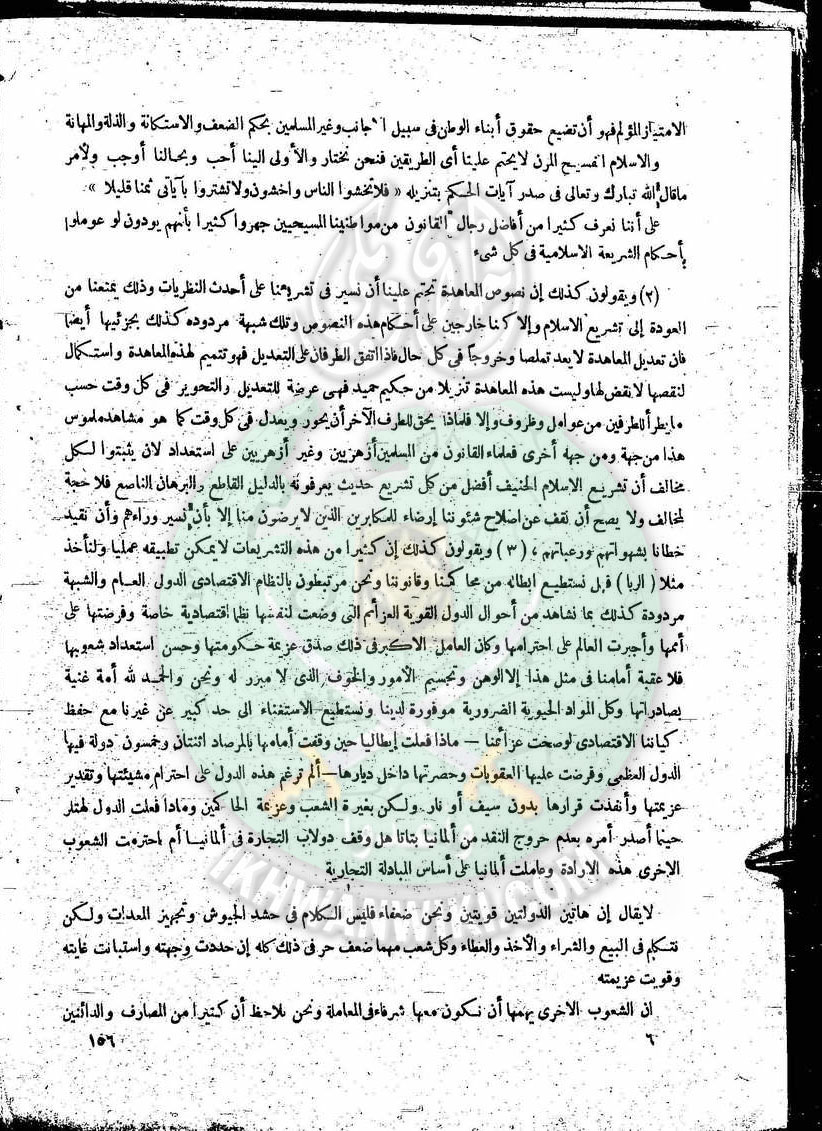 الامتياز المؤلم فهو أن تضيع حقوق أبناء الوطن فى سبيل الأجانب وغير المسلمين بحكم الضعف والاستكانة والذلة والمهانة
والاسلام الفسيح المرن لا يحتم علينا أى الطريقين فنحن نختار والأولى الينا أحب وبحالنا أوجب ولأمر
ما قال الله تبارك وتعالى فى صدر آيات الحكم بتنزيله « فلا تخشوا الناس واخشون ولا تشتروا بآياتى ثمنا قليلا » .
على أننا نعرف كثيرا من أفاضل رجال القانون من مواطنينا المسيحيين جهروا كثيرا بأنهم يودون لو عوملوا
بأحكام الشريعة الاسلامية فى كل شىء
(٢) ويقولون كذلك إن نصوص المعاهدة تحتم علينا أن نسير فى تشريعنا على أحدث النظريات وذلك يمنعنا من
العودة إلى تشريع الاسلام وإلا كنا خارجين على أحكام هذه النصوص وتلك شبهة مردوده كذلك بجزئيها أيضا
فان تعديل المعاهدة لا يعد تملصا وخروجاً فى كل حال فاذا اتفق الطرفان على التعديل فهو تتميم لهذه المعاهدة واستكمال
لنقصها لا نقض لها وليست هذه المعاهدة تنزيلا من حكيم حميد فهى عرضة للتعديل والتحوير فى كل وقت حسب
ما يطرأ للطرفين من عوامل وظروف وإلا فلماذا يحق للطرف الآخر أن يحور ويعدل فى كل وقت كما هو مشاهد ملموس
هذا من جهة ومن جهة أخرى فعلماء القانون من المسلمين أزهريين وغير أزهريين على استعداد لان يثبتوا لكل
مخالف أن تشريع الاسلام الحنيف أفضل من كل تشريع حديث يعرفونه بالدليل القاطع والبرهان الناصع فلا حجة
لمخالف ولا يصح أن نقف عن اصلاح شئوننا إرضاء للمكابرين الذين لا يرضون منا إلا بأن نسير وراءهم وأن نقيد
خطانا بشهواتهم ورغباتهم ، (٣) ويقولون كذلك إن كثيرا من هذه التشريعات لا يمكن تطبيقه عمليا ولنأخذ
مثلا (الربا) فهل نستطيع ابطاله من محاكمنا وقانوننا ونحن مرتبطون بالنظام الاقتصادى الدولى العام والشبهة
مردودة كذلك بما نشاهد من أحوال الدول القوية العزائم التى وضعت لنفسها نظما اقتصادية خاصة وفرضتها على
أممها وأجبرت العالم على احترامها وكان العامل الاكبر فى ذلك صدق عزيمة حكومتها وحسن استعداد شعوبها
فلا عقبة أمامنا فى مثل هذا إلا الوهن وتجسيم الأمور والخوف الذى لا مبرر له ونحن والحمد لله أمة غنية
بصادراتها وكل المواد الحيوية الضرورية موفورة لدينا ونستطيع الاستغناء الى حد كبير عن غيرنا مع حفظ
كياننا الاقتصادى لو صحت عزائمنا — ماذا فعلت إيطاليا حين وقفت أمامها بالمرصاد اثنتان وخمسون دولة فيها
الدول العظمى وفرضت عليها العقوبات وحصرتها داخل ديارها — ألم ترغم هذه الدول على احترام مشيئتها وتقدير
عزيمتها وأنفذت قرارها بدون سيف أو نار ولكن بغيرة الشعب وعزيمة الحاكمين وماذا فعلت الدول لهتلر
حينما أصدر أمره بعدم خروج النقد من ألمانيا بتاتا هل وقف دولاب التجارة فى ألمانيا أم احترمت الشعوب
الاخرى هذه الارادة وعاملت ألمانيا على أساس المبادلة التجارية
لا يقال إن هاتين الدولتين قويتين ونحن ضعفاء فليس الكلام فى حشد الجيوش وتجهيز المعدات ولكن
نتكلم فى البيع والشراء والأخذ والعطاء وكل شعب مهما ضعف حر فى ذلك كله إن حددت وجهته واستبانت غايته
وقويت عزيمته
ان الشعوب الاخرى يهمها أن نكون معها شرفاء فى المعاملة ونحن نلاحظ أن كثيرا من المصارف والدائنين
٦ ١٥٦
IKHWANWIKI.COM